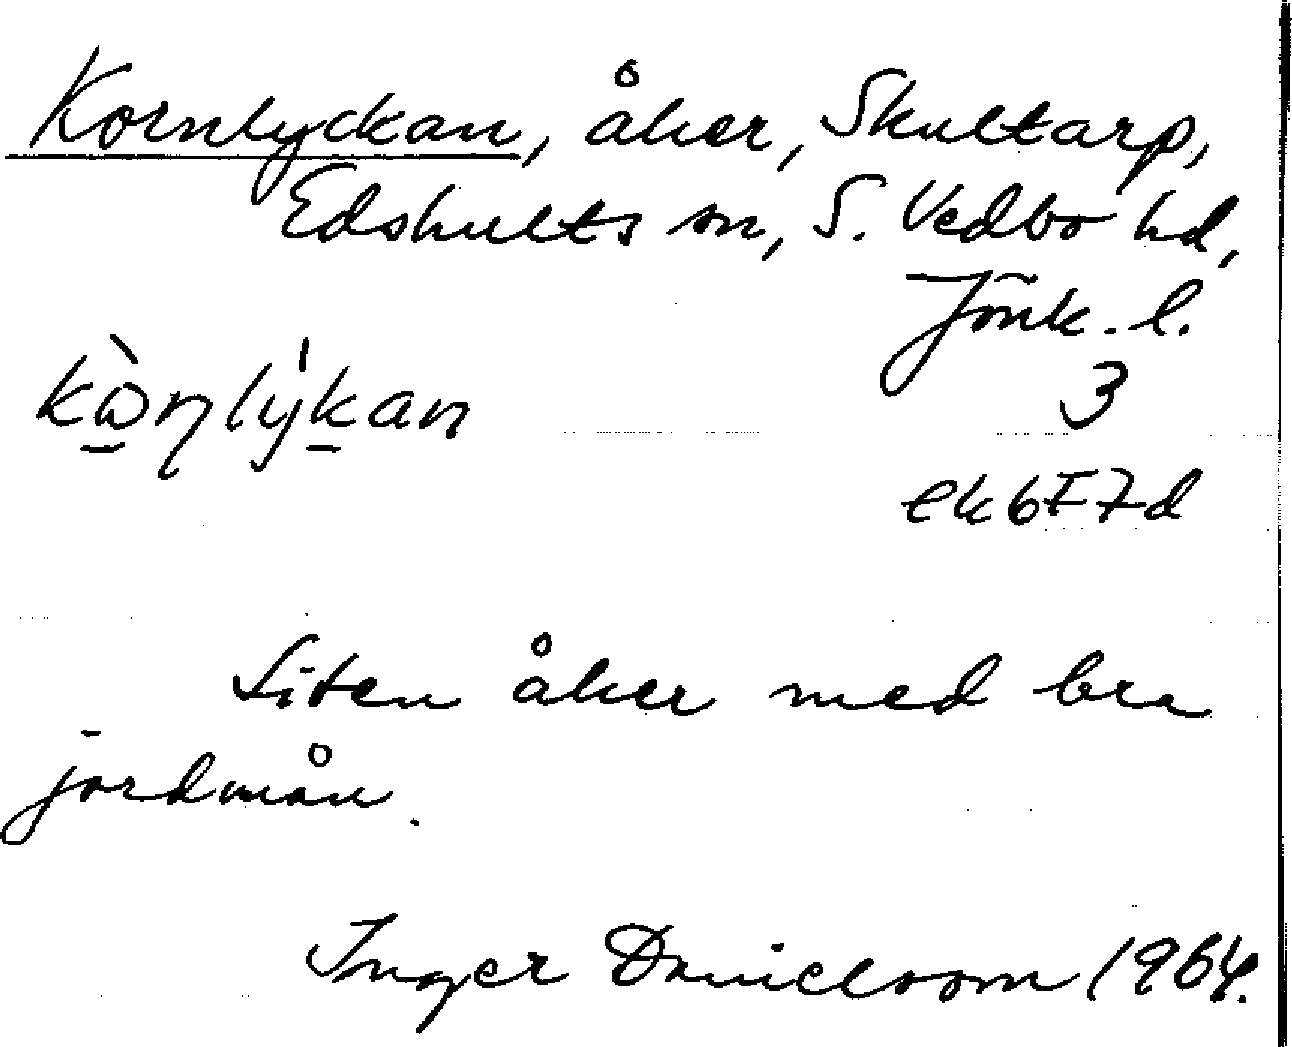 Kornlyckan, åker, Skultarp,
Edshults sn, S. Vedbo hd,
Jönk. l.
3
ek 6F7d
Liten åker med bra
jordmån.
Inger Danielsson 1964.